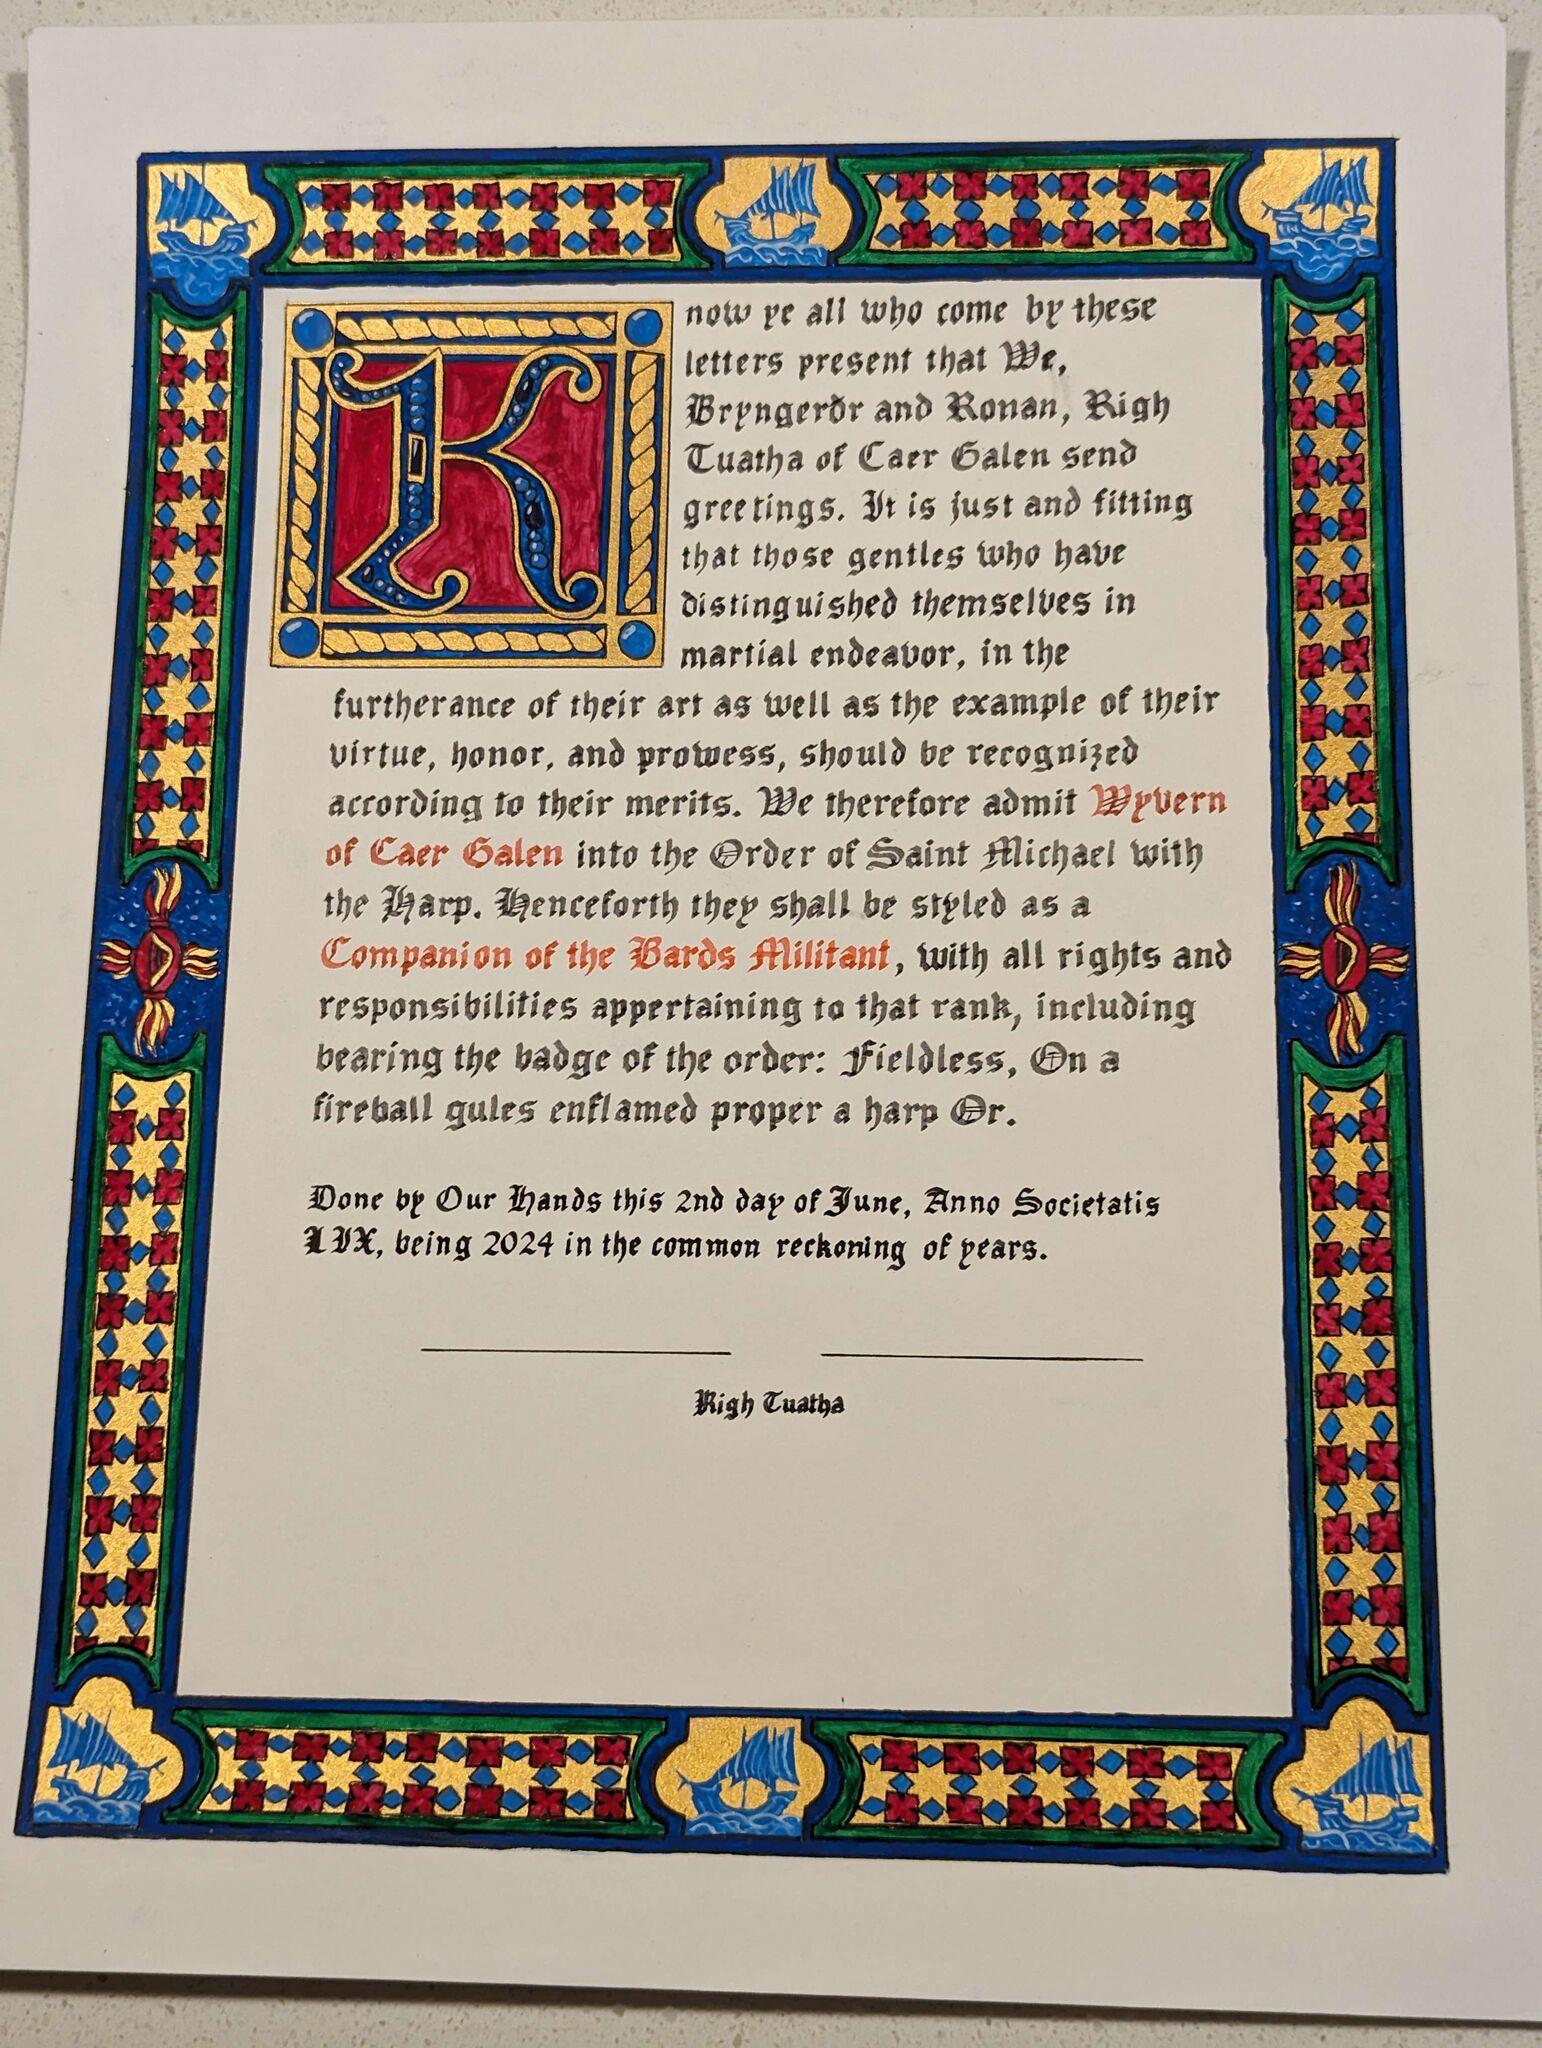 Know ye all who come by these
letters present that We,
Bryngerðr and Ronan, Righ
Tuatha of Caer Galen send
greetings. It is just and fitting
that those gentles who have
distinguished themselves in
martial endeavor, in the
furtherance of their art as well as the example of their
virtue, honor, and prowess, should be recognized
according to their merits. We therefore admit Wyvern
of Caer Galen into the Order of Saint Michael with
the Harp. Henceforth they shall be styled as a
Companion of the Bards Militant, with all rights and
responsibilities appertaining to that rank, including
bearing the badge of the order: Fieldless, On a
fireball gules enflamed proper a harp Or.
Done by Our Hands this 2nd day of June, Anno Societatis
LIX, being 2024 in the common reckoning of years.
Righ Tuatha